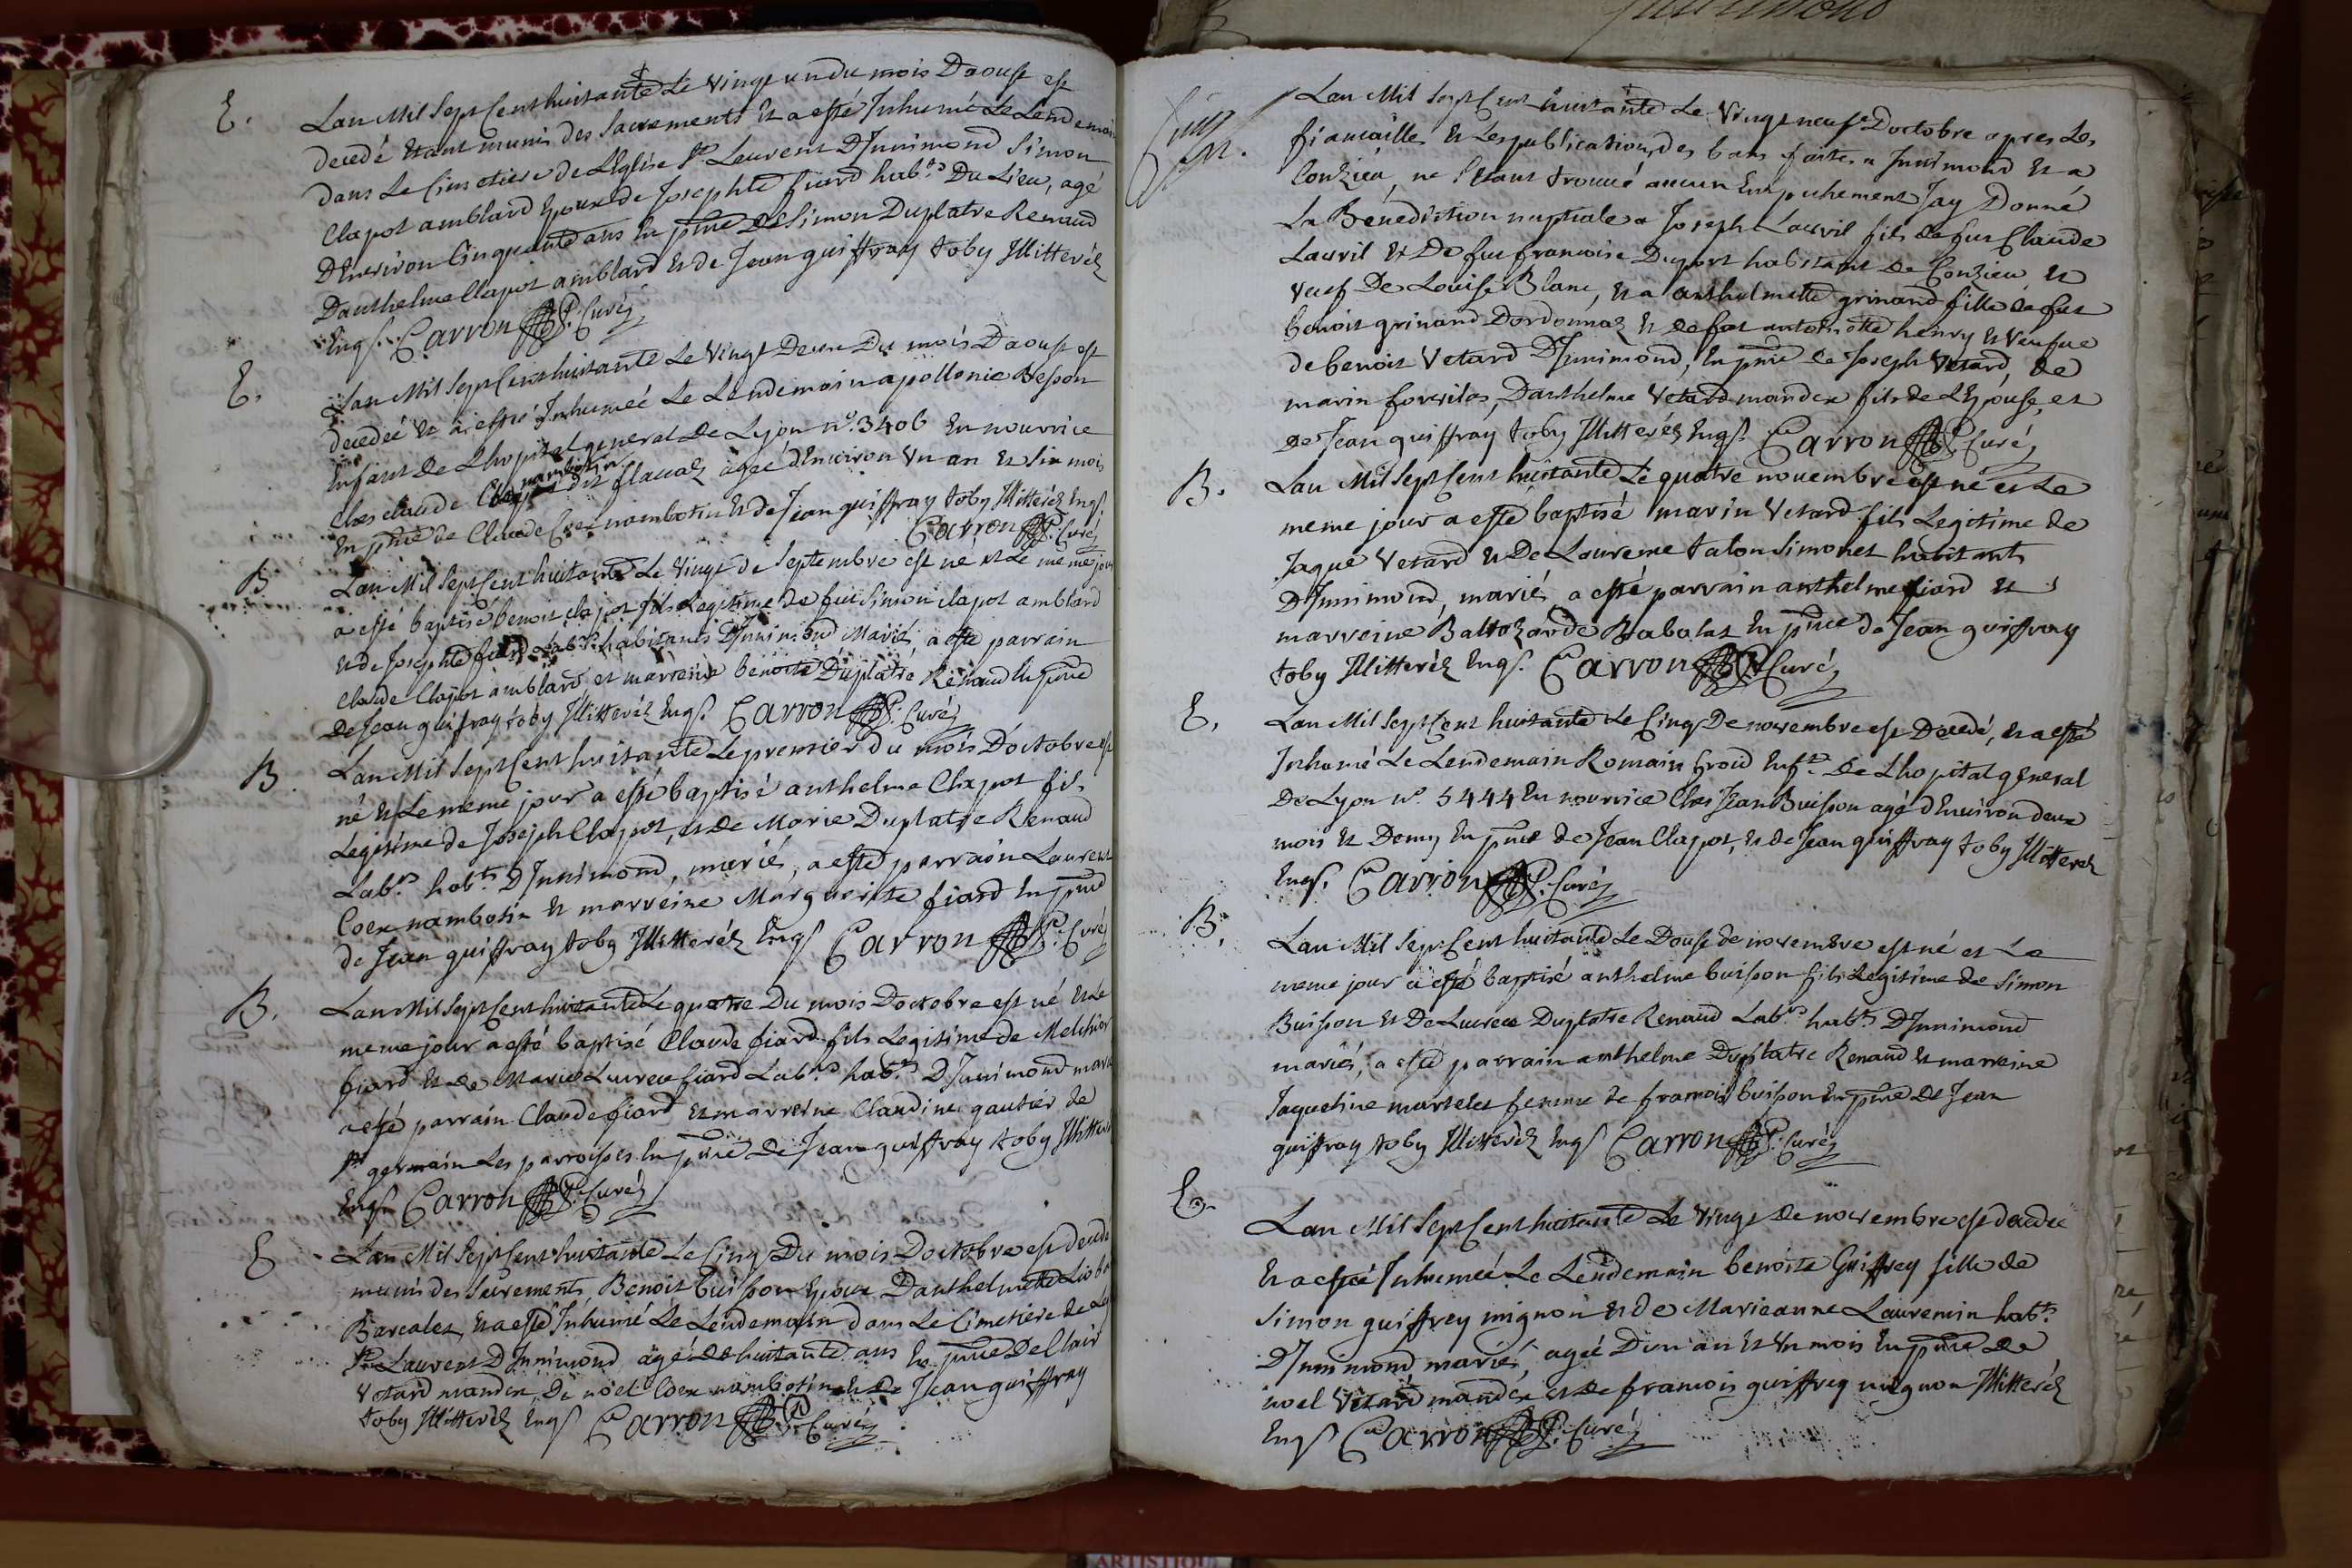 E.
Lan Mil Sept Cent huitante Le vingt un du mois Daoust est
decedé etant munis des Sacrements et a esté Inhumé Le Lendemain
dans Le Cimetiere de LEglise St. Laurent DInnimond Simon
Clapot amblard Epoux de Josephte fiard hab.ts Du Lieu, agé
DEnviron Cinquante ans En pnce De Simon Duplatre Renaud
Danthelme Clapot amblard et de Jean guiffray toby Illitteréz
Enqs. Carron Curé
E.
Lan Mil Sept Cent huitante Le vingt Deux Du mois Daoust est
decedeé et a esteé Inhumeé Le Lendemain apollonie Besson
Enfant de Lhopital general De Lyon n.º 3406 En nourrice
Ches claude Coex nambotin dit flavalz ageé dEnviron Un an et Six mois
En pnce de Claude Coex nambotin et de Jean guiffray toby Illitteréz Enqs.
Carron Curé
B
Lan Mil Sept Cent huitante Le Vingt de Septembre est né et Le meme jour
a esté baptisé benoit clapot fils Legitime de feu Simon clapot amblard
et de Josephte fiard Lab.rs habitants DInnimond Mariés, a esté parrain
Claude Clapot amblard et marreine benoite Duplatre Renaud En pnce
de Jean guiffray toby Illitteréz Enqs. Carron Curé
B.
Lan Mil Sept Cent huitante Le premier du mois Doctobre est
né et Le meme jour a esté baptisé anthelme Clapot fils
Légitime de Joseph Clapot, et De Marie Duplatre Renaud
Lab.rs hab.ts DInnimond, mariés, a esté parrain Laurent
Coex nambotin et marreine Marguerite fiard En pnce
de Jean guiffray toby Illitteréz Enqs Carron Curé
B.
Lan Mil Sept Cent huitante Le quatre Du mois Doctobre est né et Le
meme jour a esté baptisé Claude fiard fils Legitime de Melchior
fiard et de Marie Lucrece fiard Lab.rs hab.ts DInnimond mariés
a esté parrain Claude fiard et marreine Claudine gautier de
St germain Les parroisses En pnce De Jean guiffray toby Illitteréz
Enqs. Carron Curé
E
Lan Mil Sept Cent huitante Le Cinq Du mois Doctobre est decedé
munis des Sacrements Benoit buisson Epoux Danthelmette
Barcalet, et a esté Inhumé Le Lendemain dans Le Cimetiere de
St. Laurent DInnimond agé de huitante ans En pnce De Clair
Vetard mandex, De noel Coex nambotin et De Jean guiffray
toby Illitteréz Enqs Carron Curé
Lan Mil Sept Cent huitante Le Vingt neuf Doctobre apres Les
fiancailles et Les publications des bans faites a Innimond et a
Conzieu, ne Setant trouvé aucun Empechement Jay Donné
La Bénediction nuptiale a Joseph Lauril fils de feu Claude
Lauril et De feu francoise Duport habitant de Conzieu et
veuf De Louise Blanc, et a anthelmette grinand fille de feu
benoit grinand Dordonnaz et de feu antoinette henry et veufue
de benoit Vetard DInnimond, En pnce de Joseph Vetard, de
marin , Danthelme Vetard mandex fils de LEpouse, et
De Jean guiffray toby Illitteréz Enqs. Carron Curé
B.
Lan Mil Sept Cent huitante Le quatre novembre est né et Le
meme jour a esté baptisé marin Vetard fils Legitime de
Jaque Vetard et De Laurence talon Simonet habitants
DInnimond, mariés a esté parrain anthelme fiard et
marreine Baltazarde Rabalat En pnce de Jean guiffray
toby Illitteréz Enqs. Carron Curé
E.
Lan Mil Sept Cent huitante Le Cinq De novembre est Decedé, et a esté
Inhumé Le Lendemain Romain froid Enf.t De Lhopital general
De Lyon n.º 5444 En nourrice Ches Jean Buisson agé dEnviron deux
mois et Demy En pnce de Jean Clapot, et de Jean guiffray toby Illitteréz
Enqs. Carron Curé
B.
Lan Mil Sept Cent huitante Le Douse de novembre est né et Le
meme jour a esté baptisé anthelme buisson fils Legitime de Simon
Buisson et De Lucrece Duplatre Renaud Lab.rs hab.ts DInnimond
mariés, a esté parrain anthelme Duplatre Renaud et marreine
Jaqueline martelet femme de francois buisson En pnce De Jean
guiffray toby Illitteréz Enqs Carron Curé
E.
Lan Mil Sept Cent huitante Le Vingt de novembre est decedee
Et a esteé Inhumeé Le Lendemain benoite Guiffrey fille de
Simon guiffrey mignon et de Marieanne Lauremin hab.ts
DInnimond mariés, ageé Dun an et Un mois En pnce de
noel Vetard mandex et de francois guiffrey mignon Illitteréz
Enqs Carron Curé
ARTISTIQUE